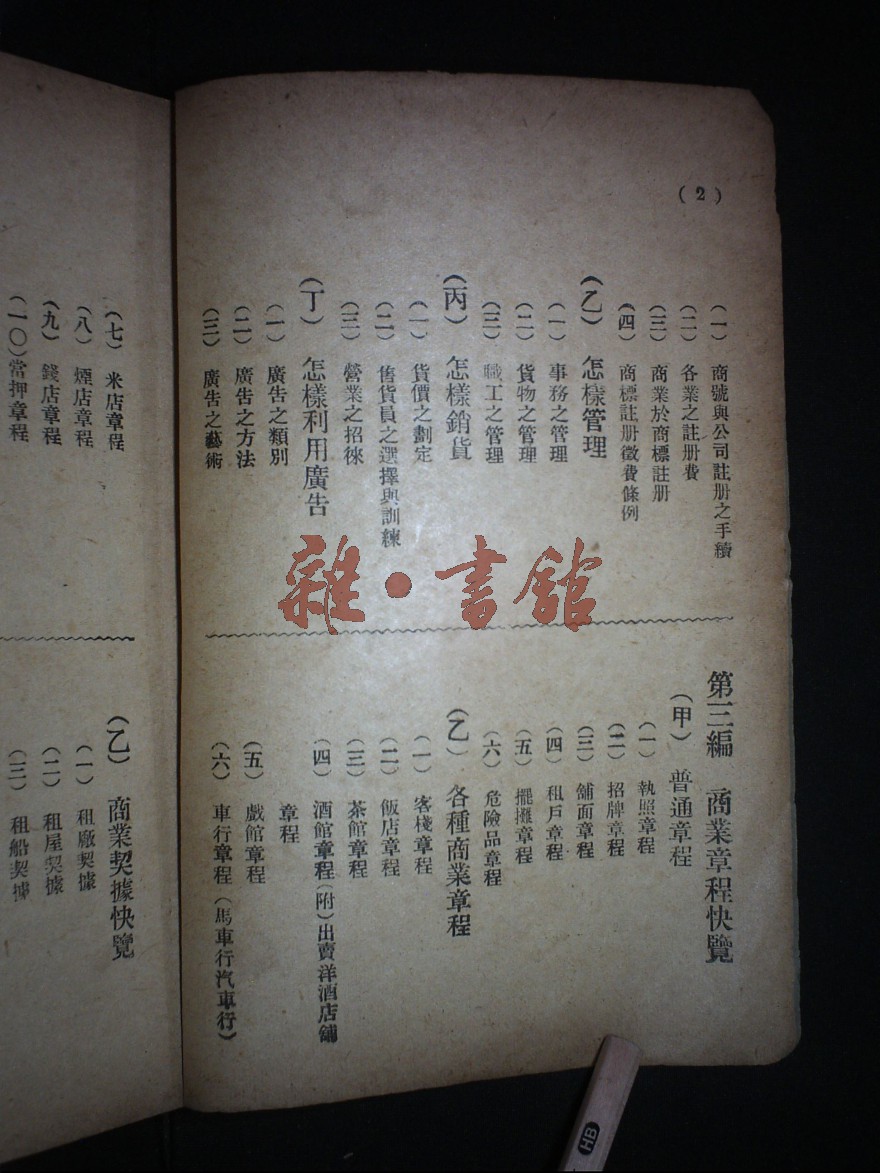 (2)
(一) 商號與公司註册之手續
(二) 各業之註册費
(三) 商業於商標註册
(四) 商標註册徵費條例
(乙) 怎樣管理
(一) 事務之管理
(二) 貨物之管理
(三) 職工之管理
(丙) 怎樣銷貨
(一) 貨價之劃定
(二) 售貨員之選擇與訓練
(三) 營業之招徠
(丁) 怎樣利用廣告
(一) 廣告之類別
(二) 廣告之方法
(三) 廣告之藝術
第三編 商業章程快覽
(甲) 普通章程
(一) 執照章程
(二) 招牌章程
(三) 舖面章程
(四) 租戶章程
(五) 擺攤章程
(六) 危險品章程
(乙) 各種商業章程
(一) 客棧章程
(二) 飯店章程
(三) 茶館章程
(四) 酒館章程(附)出賣洋酒店舖
章程
(五) 戲館章程
(六) 車行章程(馬車行汽車行)
(七) 米店章程
(八) 煙店章程
(九) 錢店章程
(一〇)當押章程
(乙) 商業契據快覽
(一) 租廠契據
(二) 租屋契據
(三) 租船契據
雜·書舘
HB